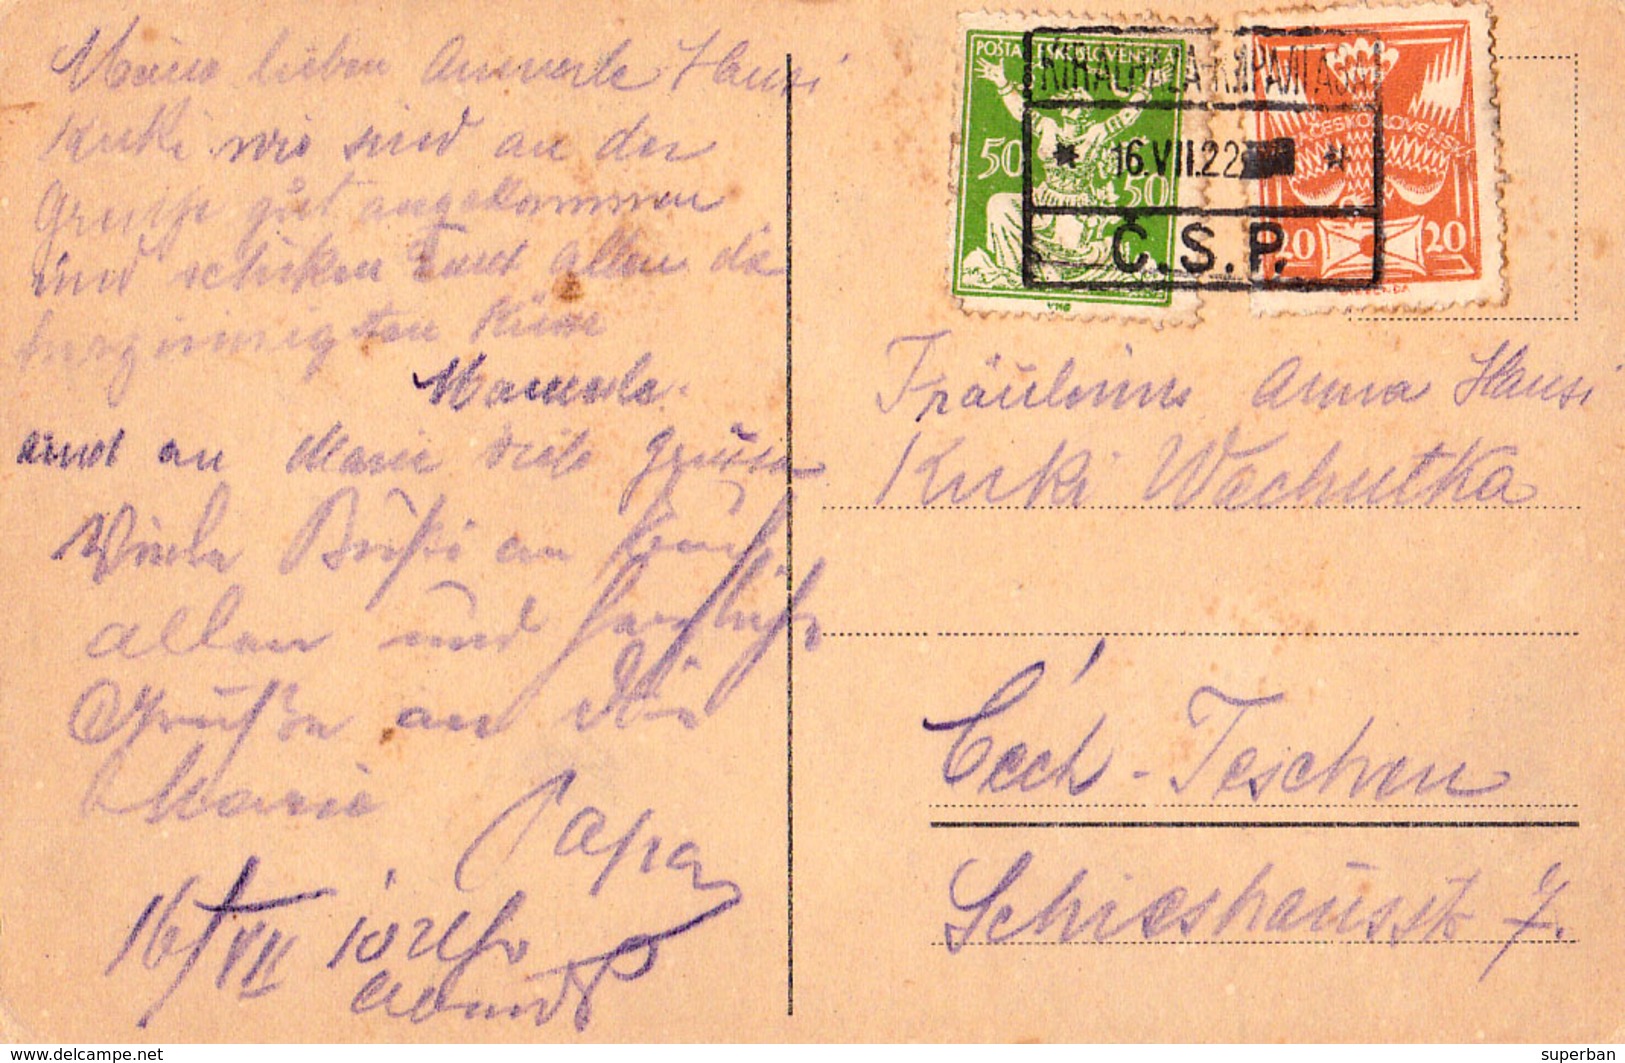 Meine lieben Annerle Hansi
Kuki wir sind an der
Grenze gut angekommen
und schiken Eunt allen die
herzinnigsten Küsse
Mamerle.
und an Marie viele Grüsse
Viele Bußi an Euch
allen und herzlichste
Grüße an die
Marie
Papa
16/VII 10 Uhr
abends
POSTA ČESKOSLOVENSKÁ
50 50
KIRALHAZA
16.VII.22
Č.S.P.
ČESKOSLOVENSKÁ
20 20
Fräuleins Anna Hansi
Kuki Wachutka
Čech-Teschen
Schieshausstr 7.
www.delcampe.net
superban